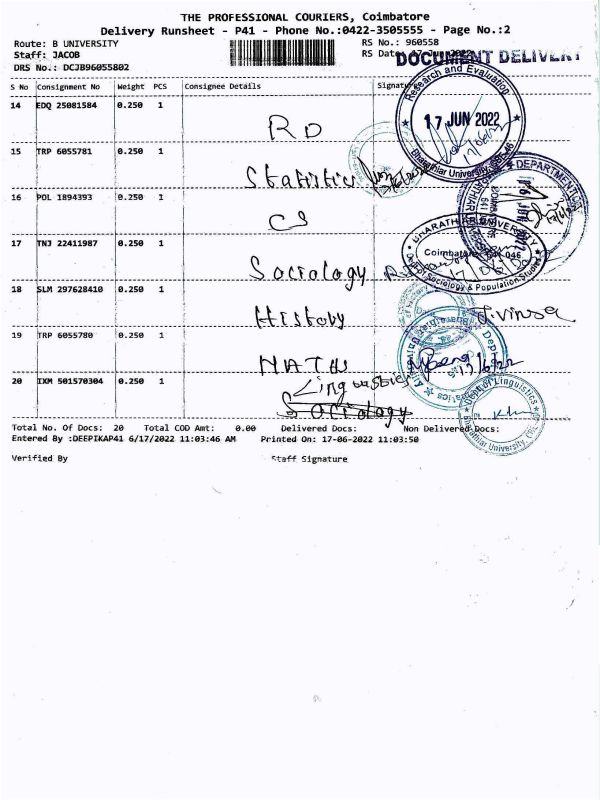 THE PROFESSIONAL COURIERS, Coimbatore
Delivery Runsheet - P41 - Phone No.:0422-3505555 - Page No.:2
Route: B UNIVERSITY
RS No.: 960558
Staff: JACOB
RS Date: 17-Jun-2022
DRS No.: DCJB96055802
DOCUMENT DELIVERY
S No Consignment No Weight PCS Consignee Details Signature
14 EDQ 25081584 0.250 1
RD
Research and Evaluation
17 JUN 2022
Bharathiar University, CBE-46
15 TRP 6055781 0.250 1
Statistics
16 POL 1894393 0.250 1
CS
DEPARTMENT OF
BHARATHIAR UNIVERSITY
Coimbatore - 641 046
Dept. of Sociology & Population Studies
17 TNJ 22411987 0.250 1
Sociology
18 SLM 297628410 0.250 1
History
19 TRP 6055780 0.250 1
MATHS
13/6/22
20 IXM 501570304 0.250 1
Linguistics
Sociology
Dept of Linguistics
Bharathiar University
Total No. Of Docs: 20 Total COD Amt: 0.00 Delivered Docs: Non Delivered Docs:
Entered By :DEEPIKAP41 6/17/2022 11:03:46 AM Printed On: 17-06-2022 11:03:50
Verified By Staff Signature